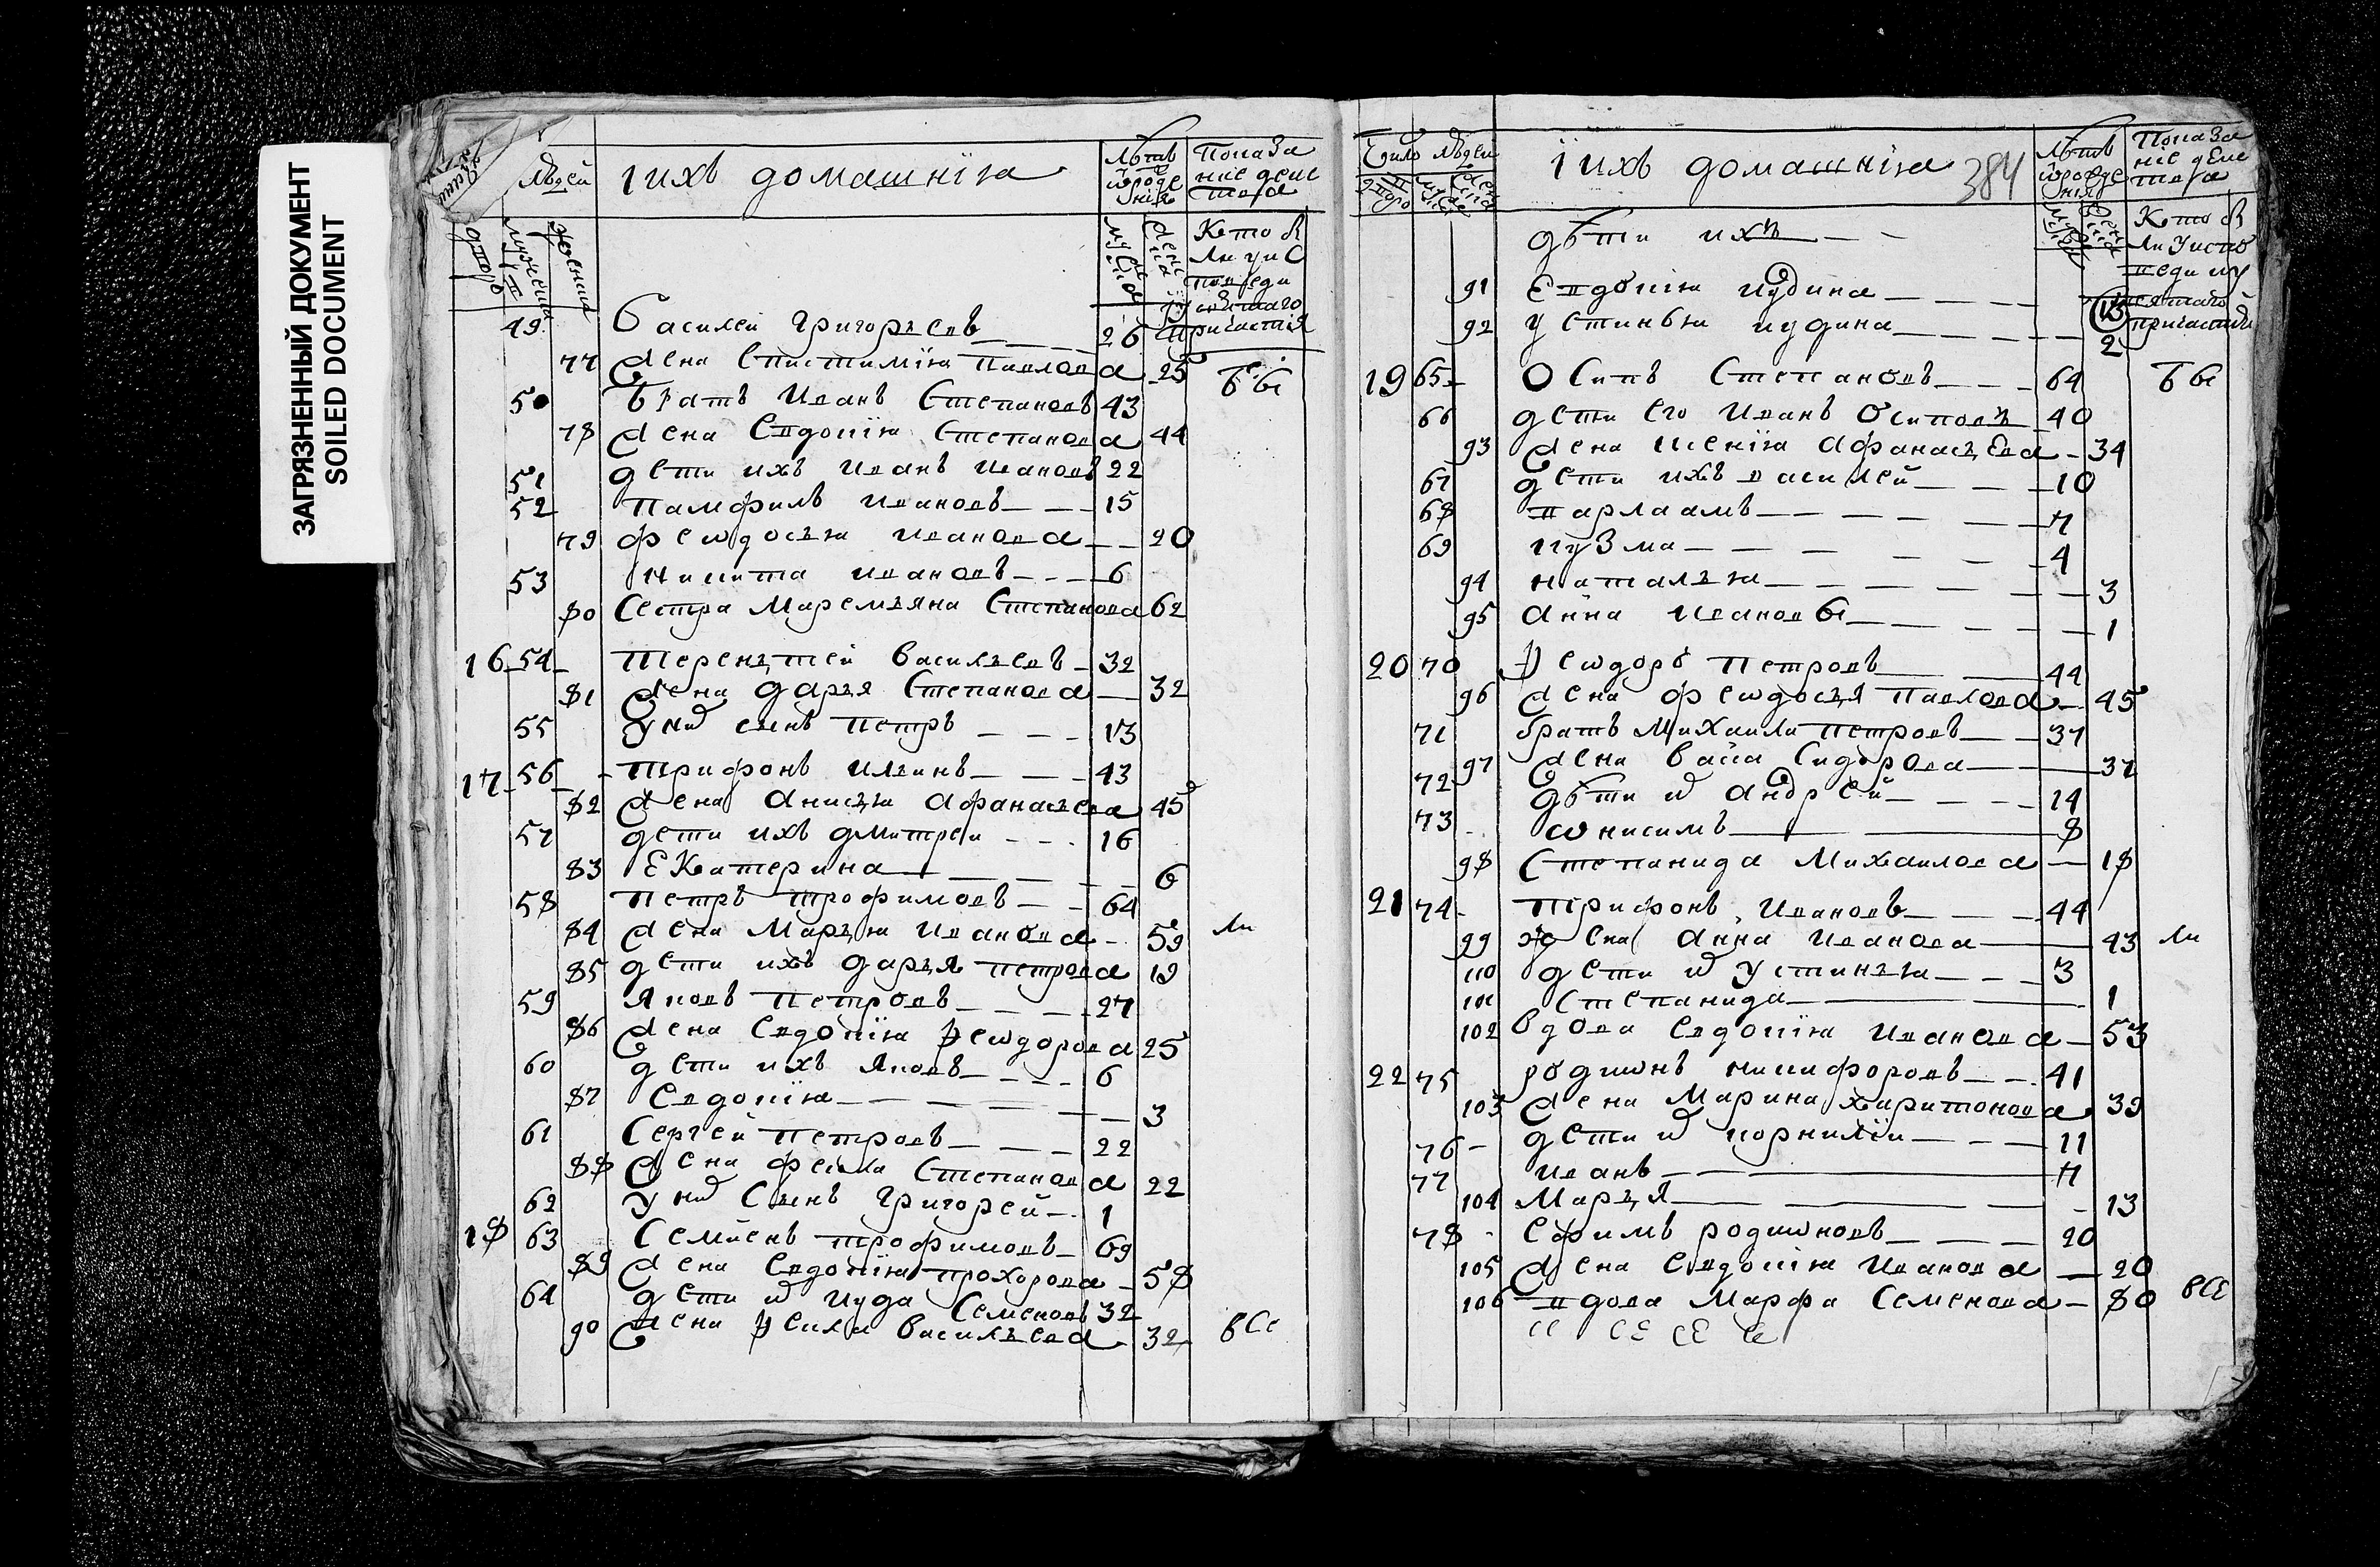 ЗАГРЯЗНЕННЫЙ ДОКУМЕНТ
SOILED DOCUMENT
людей
ихъ домашнїя
лѣтъ
ѿрожде
нїя
Показа
нїе деис
тва
Кто б
ли у ис
поведи
и святаго
причастїя
49 Василеи Григорьевъ 26
77 Жена Епистимїя Павлова 25 бы
50 Братъ Иванъ Степановъ 43
78 Жена Евдокїя Степанова 44
51 дети ихъ Иванъ Ивановъ 22
52 Памфилъ Ивановъ 15
79 Феѡдосья Иванова 20
53 Никита Ивановъ 6
80 Сестра Маремьяна Степанова 62
16 54 Терентей Васильевъ 32
81 Жена Дарья Степанова 32
55 У нихъ сынъ Петръ 13
17 56 Трифонъ Ильинъ 43
82 Жена Анисья Афанасьева 45
57 дети ихъ Дмитреи 16
83 Екатерина 6
58 Петръ Трофимовъ 64
84 Жена Марья Иванова 59 ли
85 дети ихъ Дарья Петрова 19
59 Яковъ Петровъ 27
86 Жена Евдокїя Феѡдорова 25
60 дети ихъ Яковъ 6
87 Евдокїя 3
61 Сергеи Петровъ 22
88 Жена Фекла Степанова 22
62 У нихъ Сынъ Григорей 1
18 63 Семиенъ Трофимовъ 69
89 Жена Евдокїя Прохорова 58
64 дети их Иуда Семеновъ 32
90 Жена Васильева 32 все
Число людей
ихъ домашнїя 384
лѣтъ
ѿрожде
нїя
Показа
нїе деис
тва
Кто б
ли у испо
веди и у
святаго
причастия
дѣти ихъ
91 Евдокїя Иудина
92 Устинья Иудина 2
19 65 Осипъ Степановъ 64 бы
66 дети его Иванъ Осиповъ 40
93 Жена Ксенїя Афанасьева 34
67 дети ихъ Василей 10
68 Варлаамъ 7
69 Кузма 4
94 Наталья 3
95 Анна Ивановы 1
20 70 Феѡдоръ Петровъ 44
96 Жена Феѡдосья Павлова 45
71 братъ Михаила Петровъ 37
97 Жена Васса Сидорова 37
72 дѣти их Андрей 14
73 Ѡнисимъ 8
98 Степанида Михаилова 18
21 74 Трифонъ Ивановъ 44
99 Жена Анна Иванова 43 ли
110 дети их Устинья 3
101 Степанида 1
102 Вдова Евдокїя Иванова 53
22 75 Родиѡнъ Никифоровъ 41
103 Жена Марина Харитонова 39
76 дети их Корнилїи 11
77 Иванъ 7
104 Марья 13
78 Ефимъ Родиѡновъ 20
105 Жена Евдокїя Иванова 20
106 Вдова Марфа Семенова 80 все